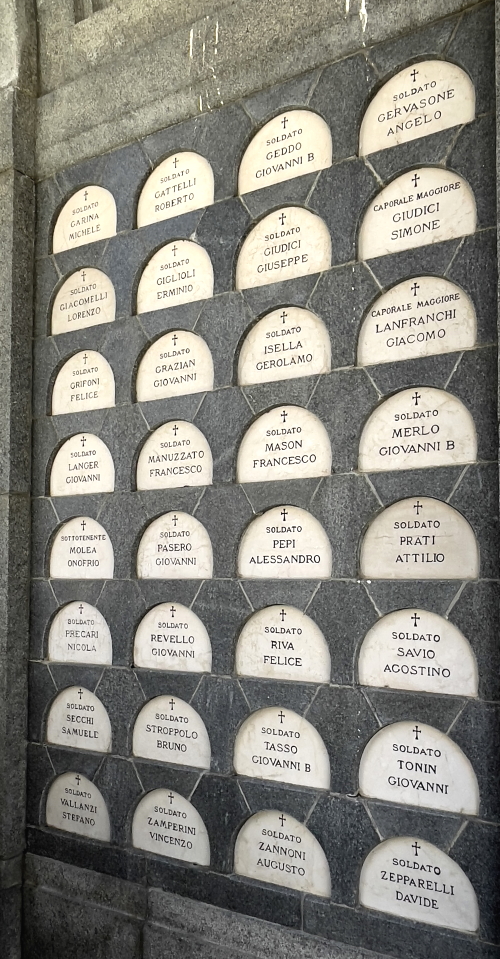 SOLDATO
GARINA
MICHELE
SOLDATO
GATTELLI
ROBERTO
SOLDATO
GEDDO
GIOVANNI B
SOLDATO
GERVASONE
ANGELO
SOLDATO
GIACOMELLI
LORENZO
SOLDATO
GIGLIOLI
ERMINIO
SOLDATO
GIUDICI
GIUSEPPE
CAPORALE MAGGIORE
GIUDICI
SIMONE
SOLDATO
GRIFONI
FELICE
SOLDATO
GRAZIAN
GIOVANNI
SOLDATO
ISELLA
GEROLAMO
CAPORALE MAGGIORE
LANFRANCHI
GIACOMO
SOLDATO
LANGER
GIOVANNI
SOLDATO
MANUZZATO
FRANCESCO
SOLDATO
MASON
FRANCESCO
SOLDATO
MERLO
GIOVANNI B
SOTTOTENENTE
MOLEA
ONOFRIO
SOLDATO
PASERO
GIOVANNI
SOLDATO
PEPI
ALESSANDRO
SOLDATO
PRATI
ATTILIO
SOLDATO
PRECARI
NICOLA
SOLDATO
REVELLO
GIOVANNI
SOLDATO
RIVA
FELICE
SOLDATO
SAVIO
AGOSTINO
SOLDATO
SECCHI
SAMUELE
SOLDATO
STROPPOLO
BRUNO
SOLDATO
TASSO
GIOVANNI B
SOLDATO
TONIN
GIOVANNI
SOLDATO
VALLANZI
STEFANO
SOLDATO
ZAMPERINI
VINCENZO
SOLDATO
ZANNONI
AUGUSTO
SOLDATO
ZEPPARELLI
DAVIDE